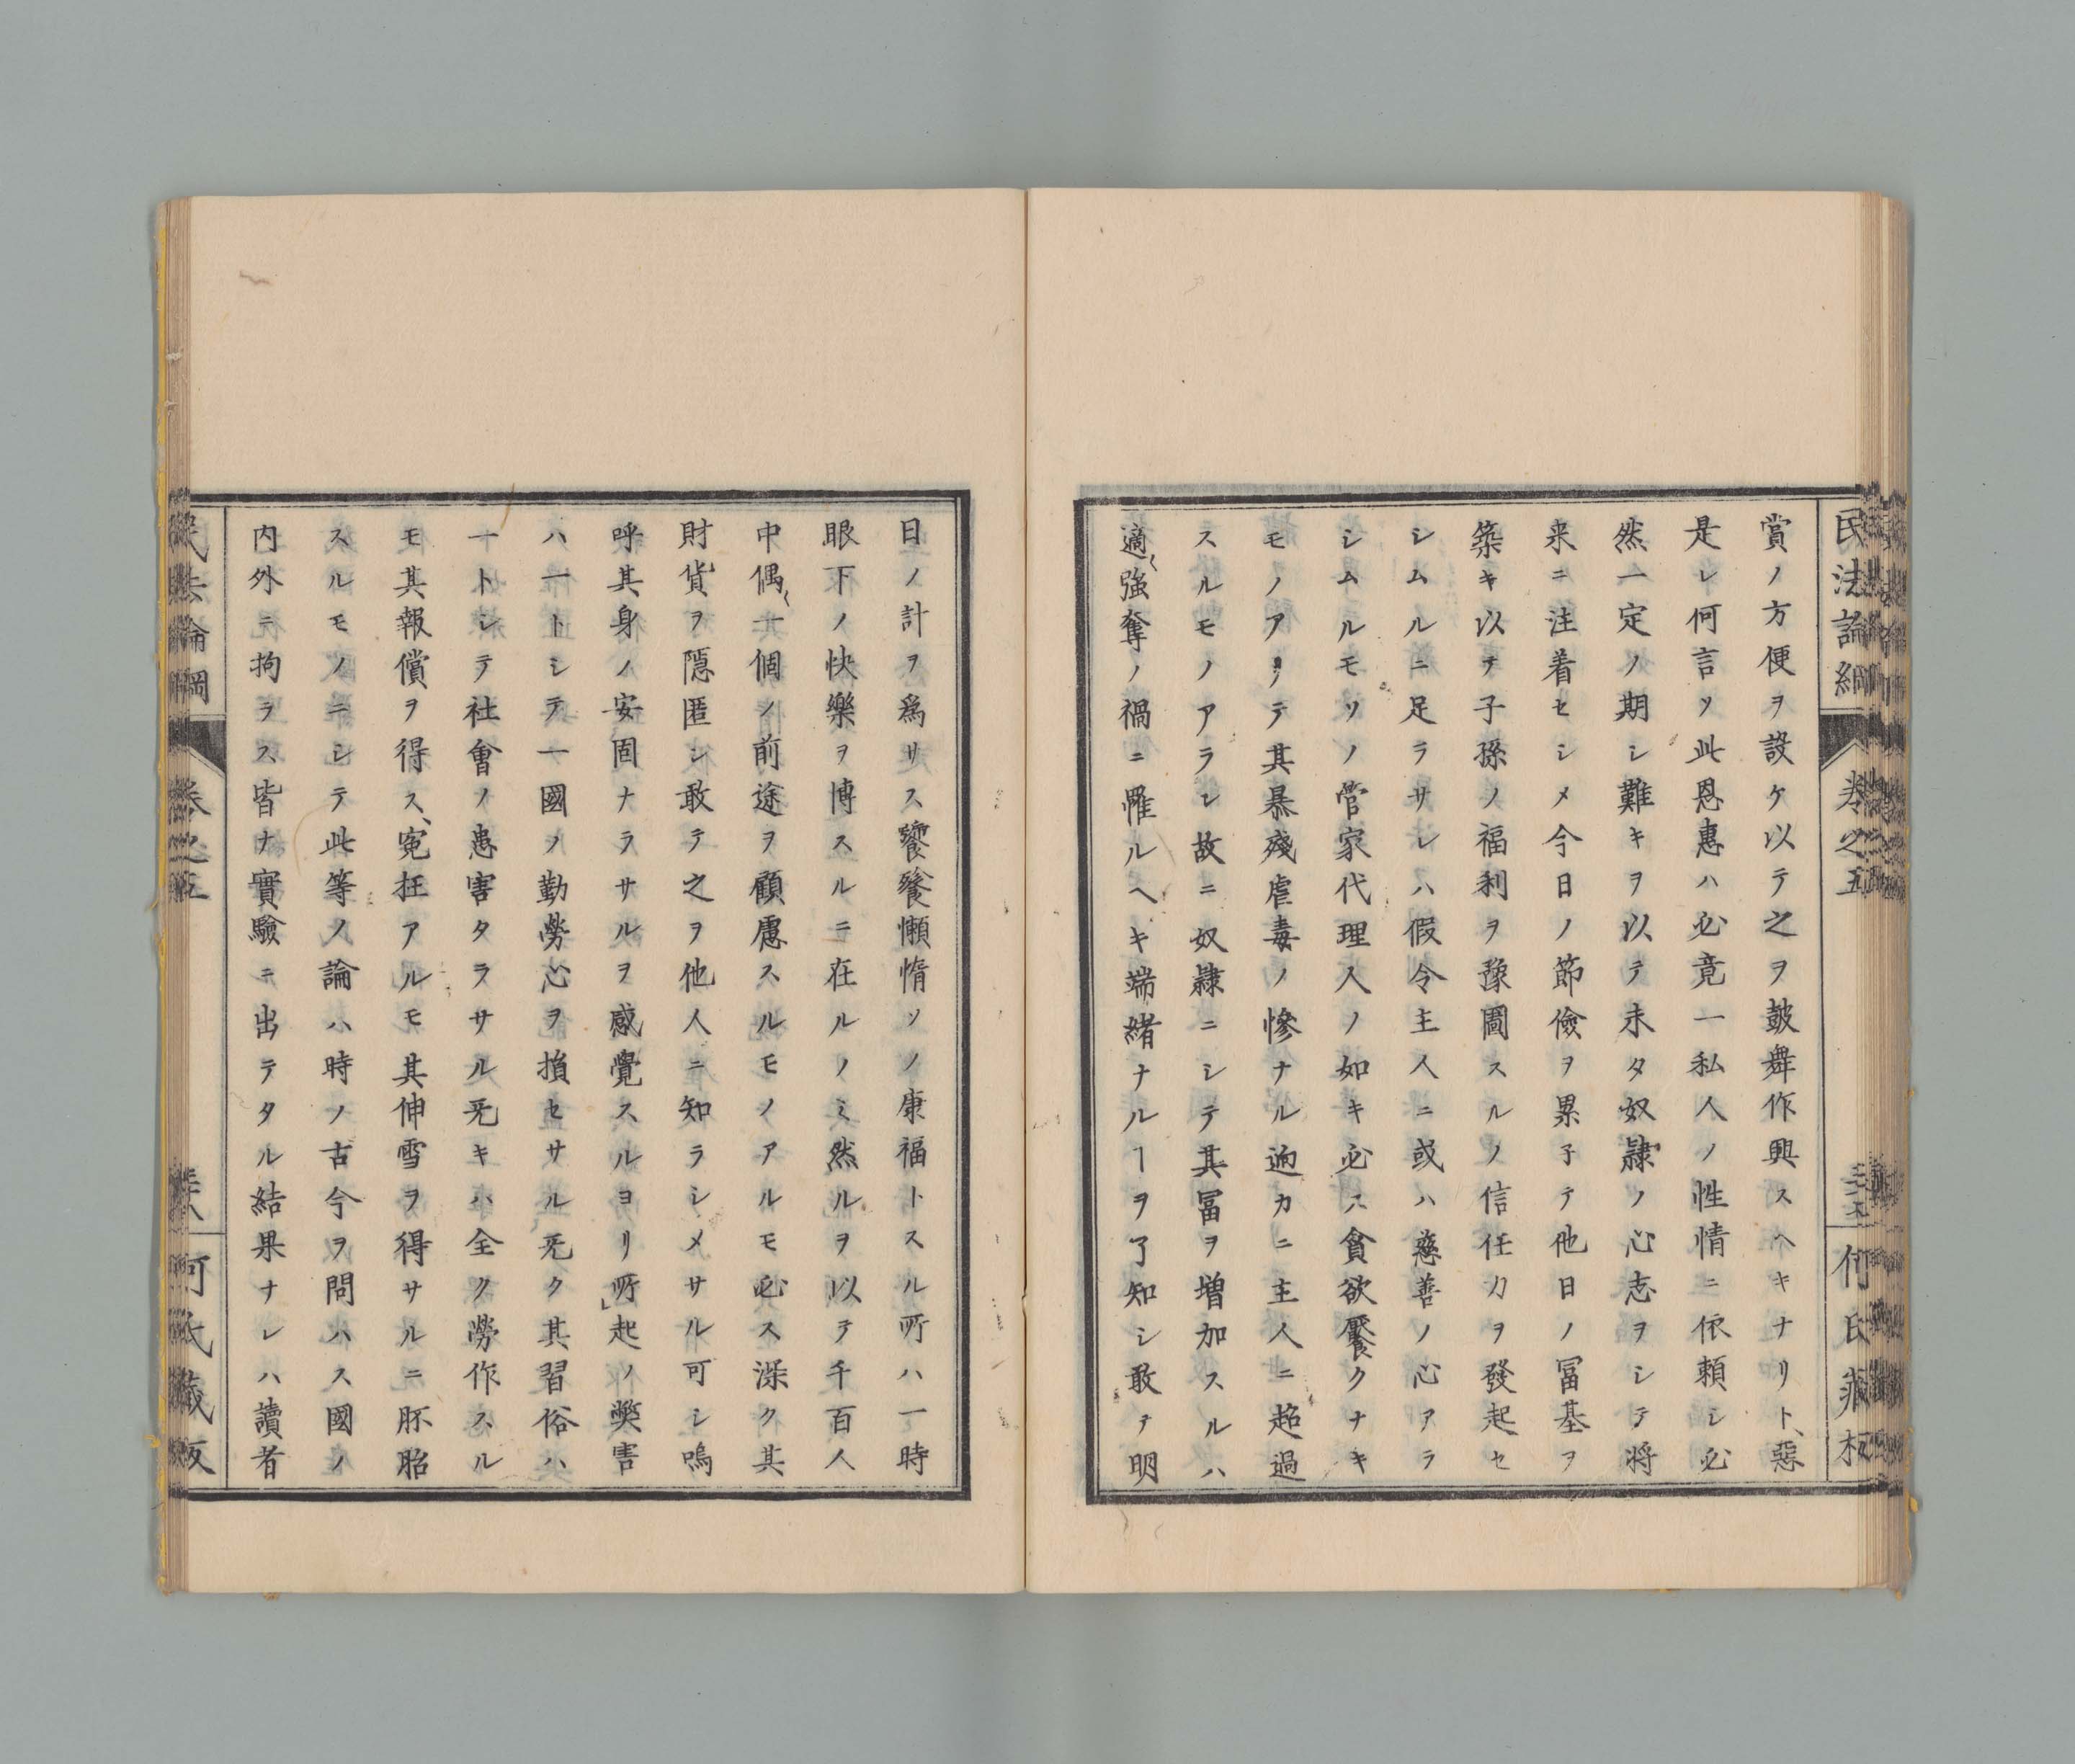 民法論綱
卷之五
何氏藏板
賞ノ方便ヲ設ケ以テ之ヲ皷舞作興スヘキナリト、惡
是レ何言ソ此恩惠ハ必竟一私人ノ性情ニ依頼シ必
然一定ノ期シ難キヲ以テ未タ奴隷ノ心志ヲシテ将
来ニ注着セシメ今日ノ節儉ヲ累子テ他日ノ冨基ヲ
築キ以テ子孫ノ福利ヲ豫圖スルノ信任力ヲ發起セ
シムルニ足ラサレハ假令主人ニ或ハ慈善ノ心アラ
シムルモソノ管家代理人ノ如キ必ス貪欲饜クナキ
モノアリテ其暴殘虐毒ノ慘ナル逈カニ主人ニ超過
スルモノアラン故ニ奴隷ニシテ其冨ヲ増加スルハ
適〻強奪ノ禍ニ罹ルヘキ端緒ナルヿヲ了知シ敢テ明
日ノ計ヲ爲サス饕餮懶惰ソノ康福トスル所ハ一時
眼下ノ快樂ヲ博スルニ在ルノミ然ルヲ以テ千百人
中偶〻一個ノ前途ヲ顧慮スルモノアルモ必ス深ク其
財貨ヲ隱匿シ敢テ之ヲ他人ニ知ラシメサル可シ嗚
呼其身ノ安固ナラサルヲ感覺スルヨリ所起ノ獘害
ハ一トシテ一國ノ勤勞心ヲ損セサル旡ク其習俗ハ
一トシテ社會ノ患害タラサル旡キハ全ク勞作スル
モ其報償ヲ得ス、冤抂アルモ其伸雪ヲ得サルニ胚胎
スルモノニシテ此等ノ論ハ時ノ古今ヲ問ハス國ノ
内外ニ拘ラス皆ナ實驗ニ出テタル結果ナレハ讀者
民法論綱
卷之五
何氏藏版